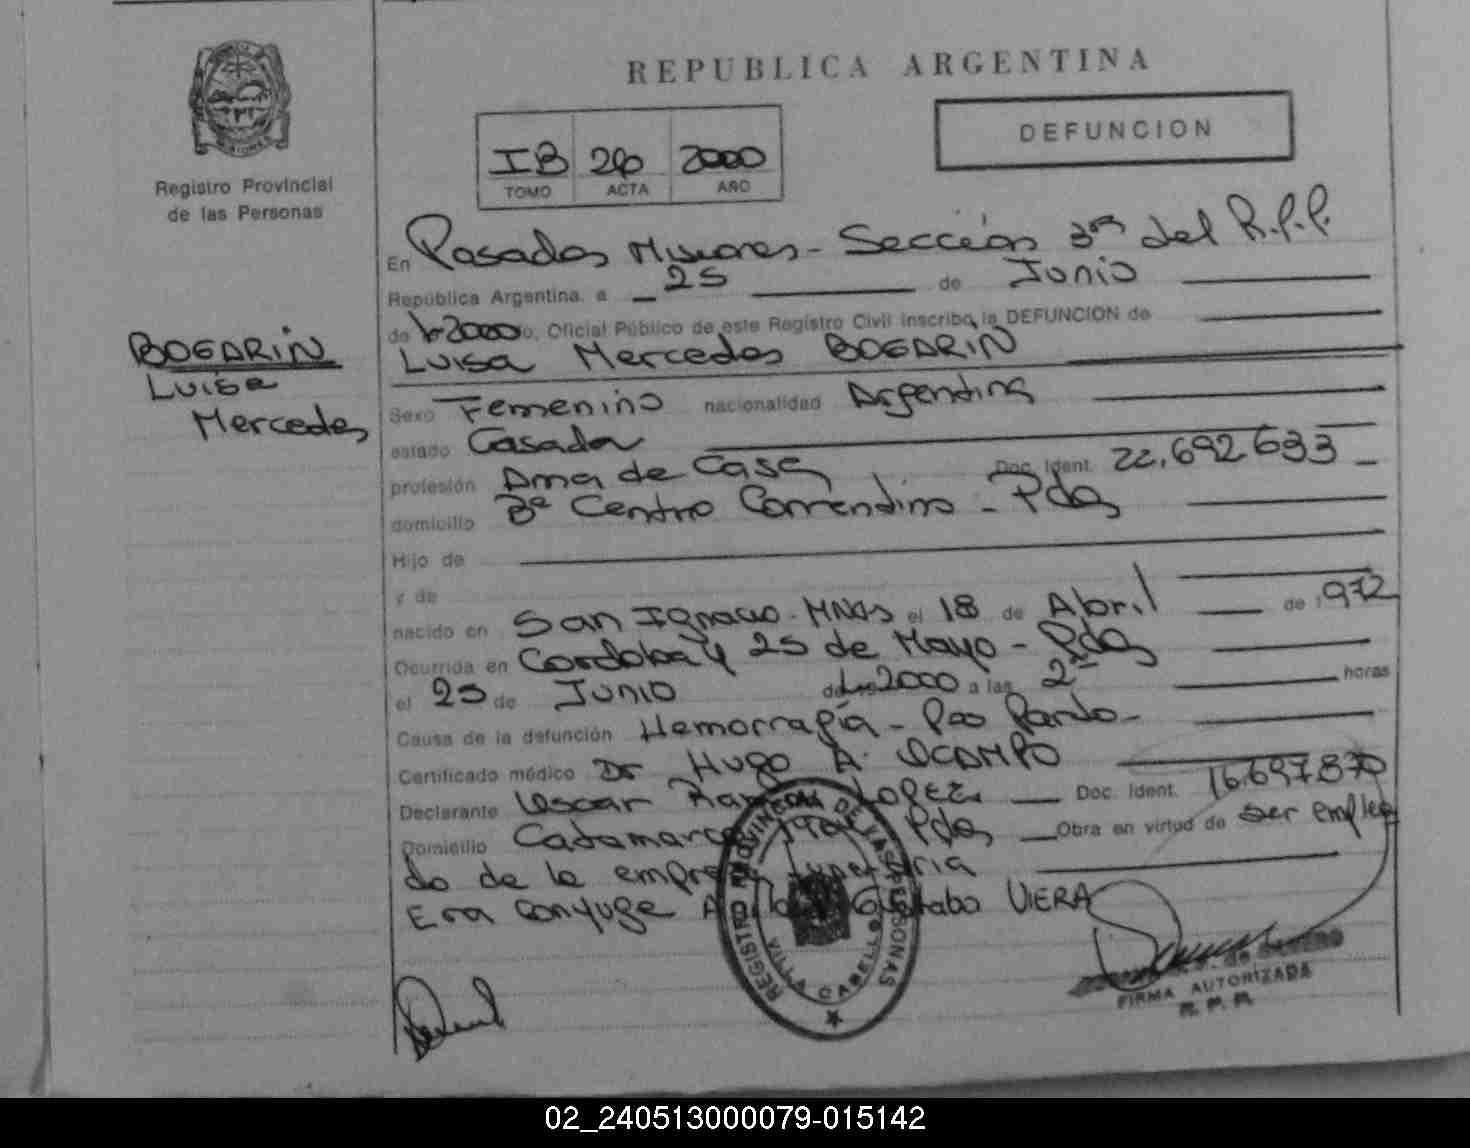 REPUBLICA ARGENTINA
DEFUNCION
IB 26 2000
TOMO ACTA AÑO
Registro Provincial
de las Personas
BOGARIN
Luisa
Mercedes
En Posadas Misiones - Sección 3ra del R.P.P.
República Argentina, a 25 de Junio
de 2000 Oficial Público de este Registro Civil inscribo la DEFUNCION de
Luisa Mercedes BOGARIN
Sexo Femenino nacionalidad Argentina
estado Casada
profesión Ama de Casa Doc. Ident. 22.692.633
domicilio Bº Centro Correntino - Pdas
Hijo de
y de
nacido en San Ignacio - Mnes el 18 de Abril de 1972
Ocurrida en Cordoba y 25 de Mayo - Pdas
el 25 de Junio de 2000 a las 2 horas
Causa de la defunción Hemorragía - Pos Parto -
Certificado médico Dr Hugo A. OCAMPO
Declarante Oscar LOPEZ Doc. Ident. 16.697.870
Domicilio Catamarca Pdas Obra en virtud de ser emplea
do de la empresa
Era conyuge VIERA
REGISTRO PROVINCIAL DE LAS PERSONAS
VILLA CABELLO
FIRMA AUTORIZADA
R. P. P.
02_240513000079-015142